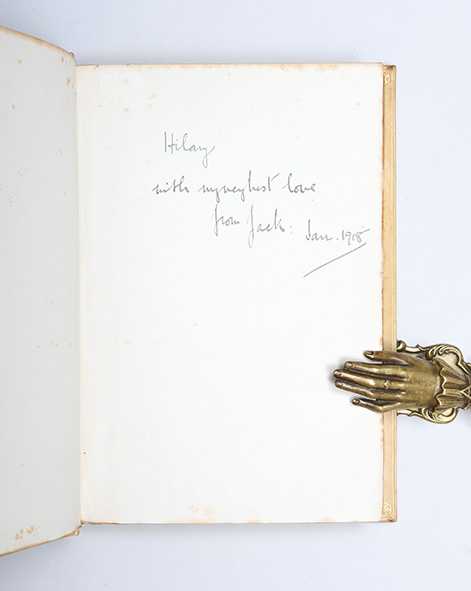 Hilary
with my very best love
from Jack: Jan. 1918